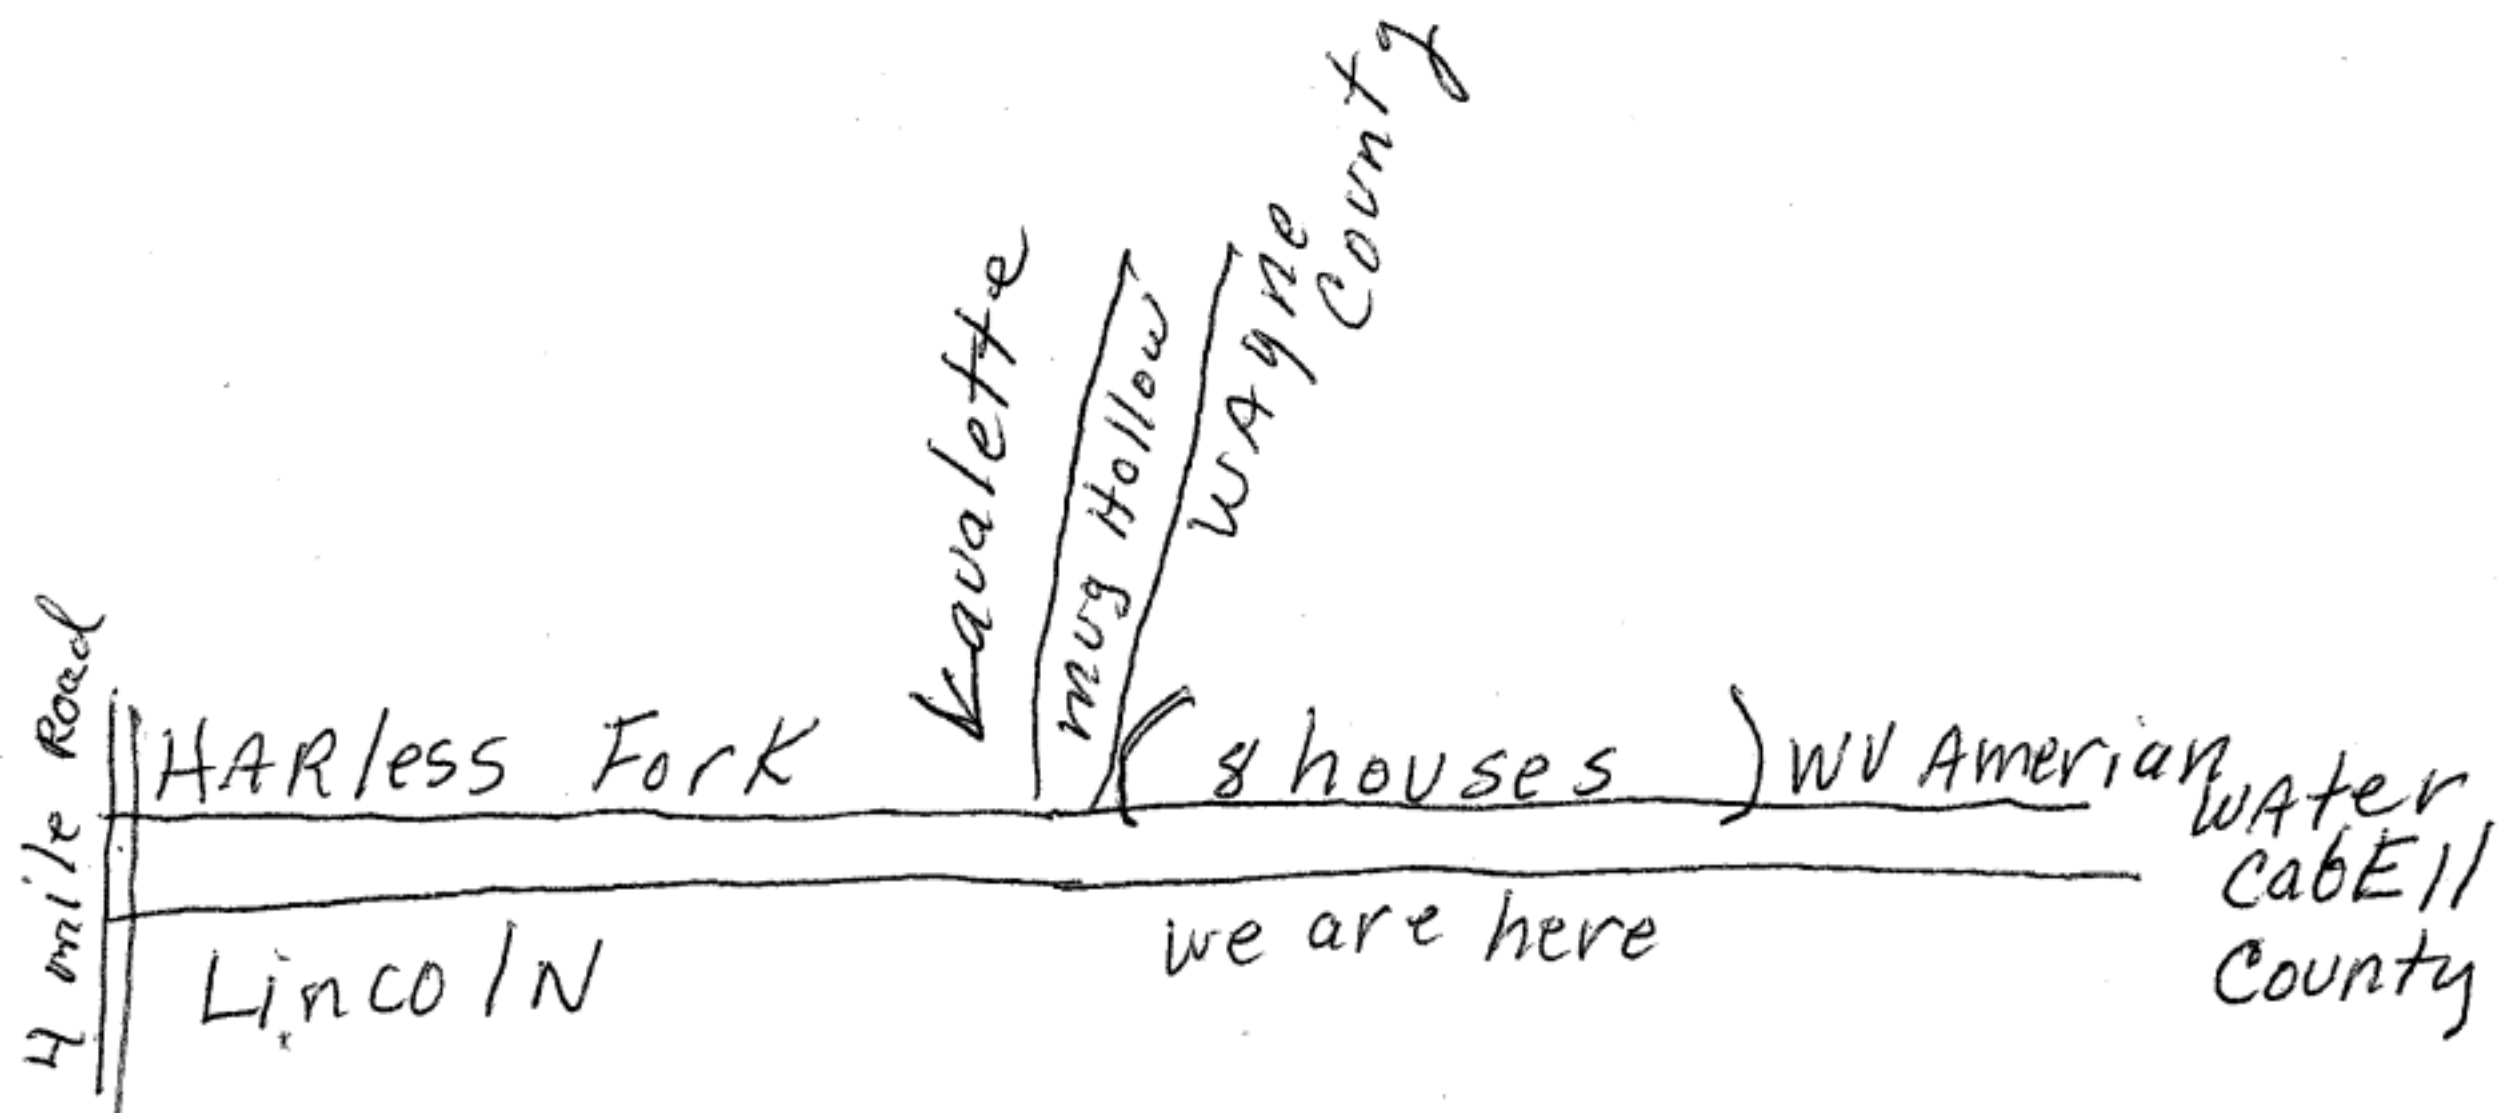 4 mile Road
HARless Fork
Lavalette
mug Hollow
WAyne
County
(8 houses)
WV Amerian
WAter
CabEll
County
LincolN
we are here